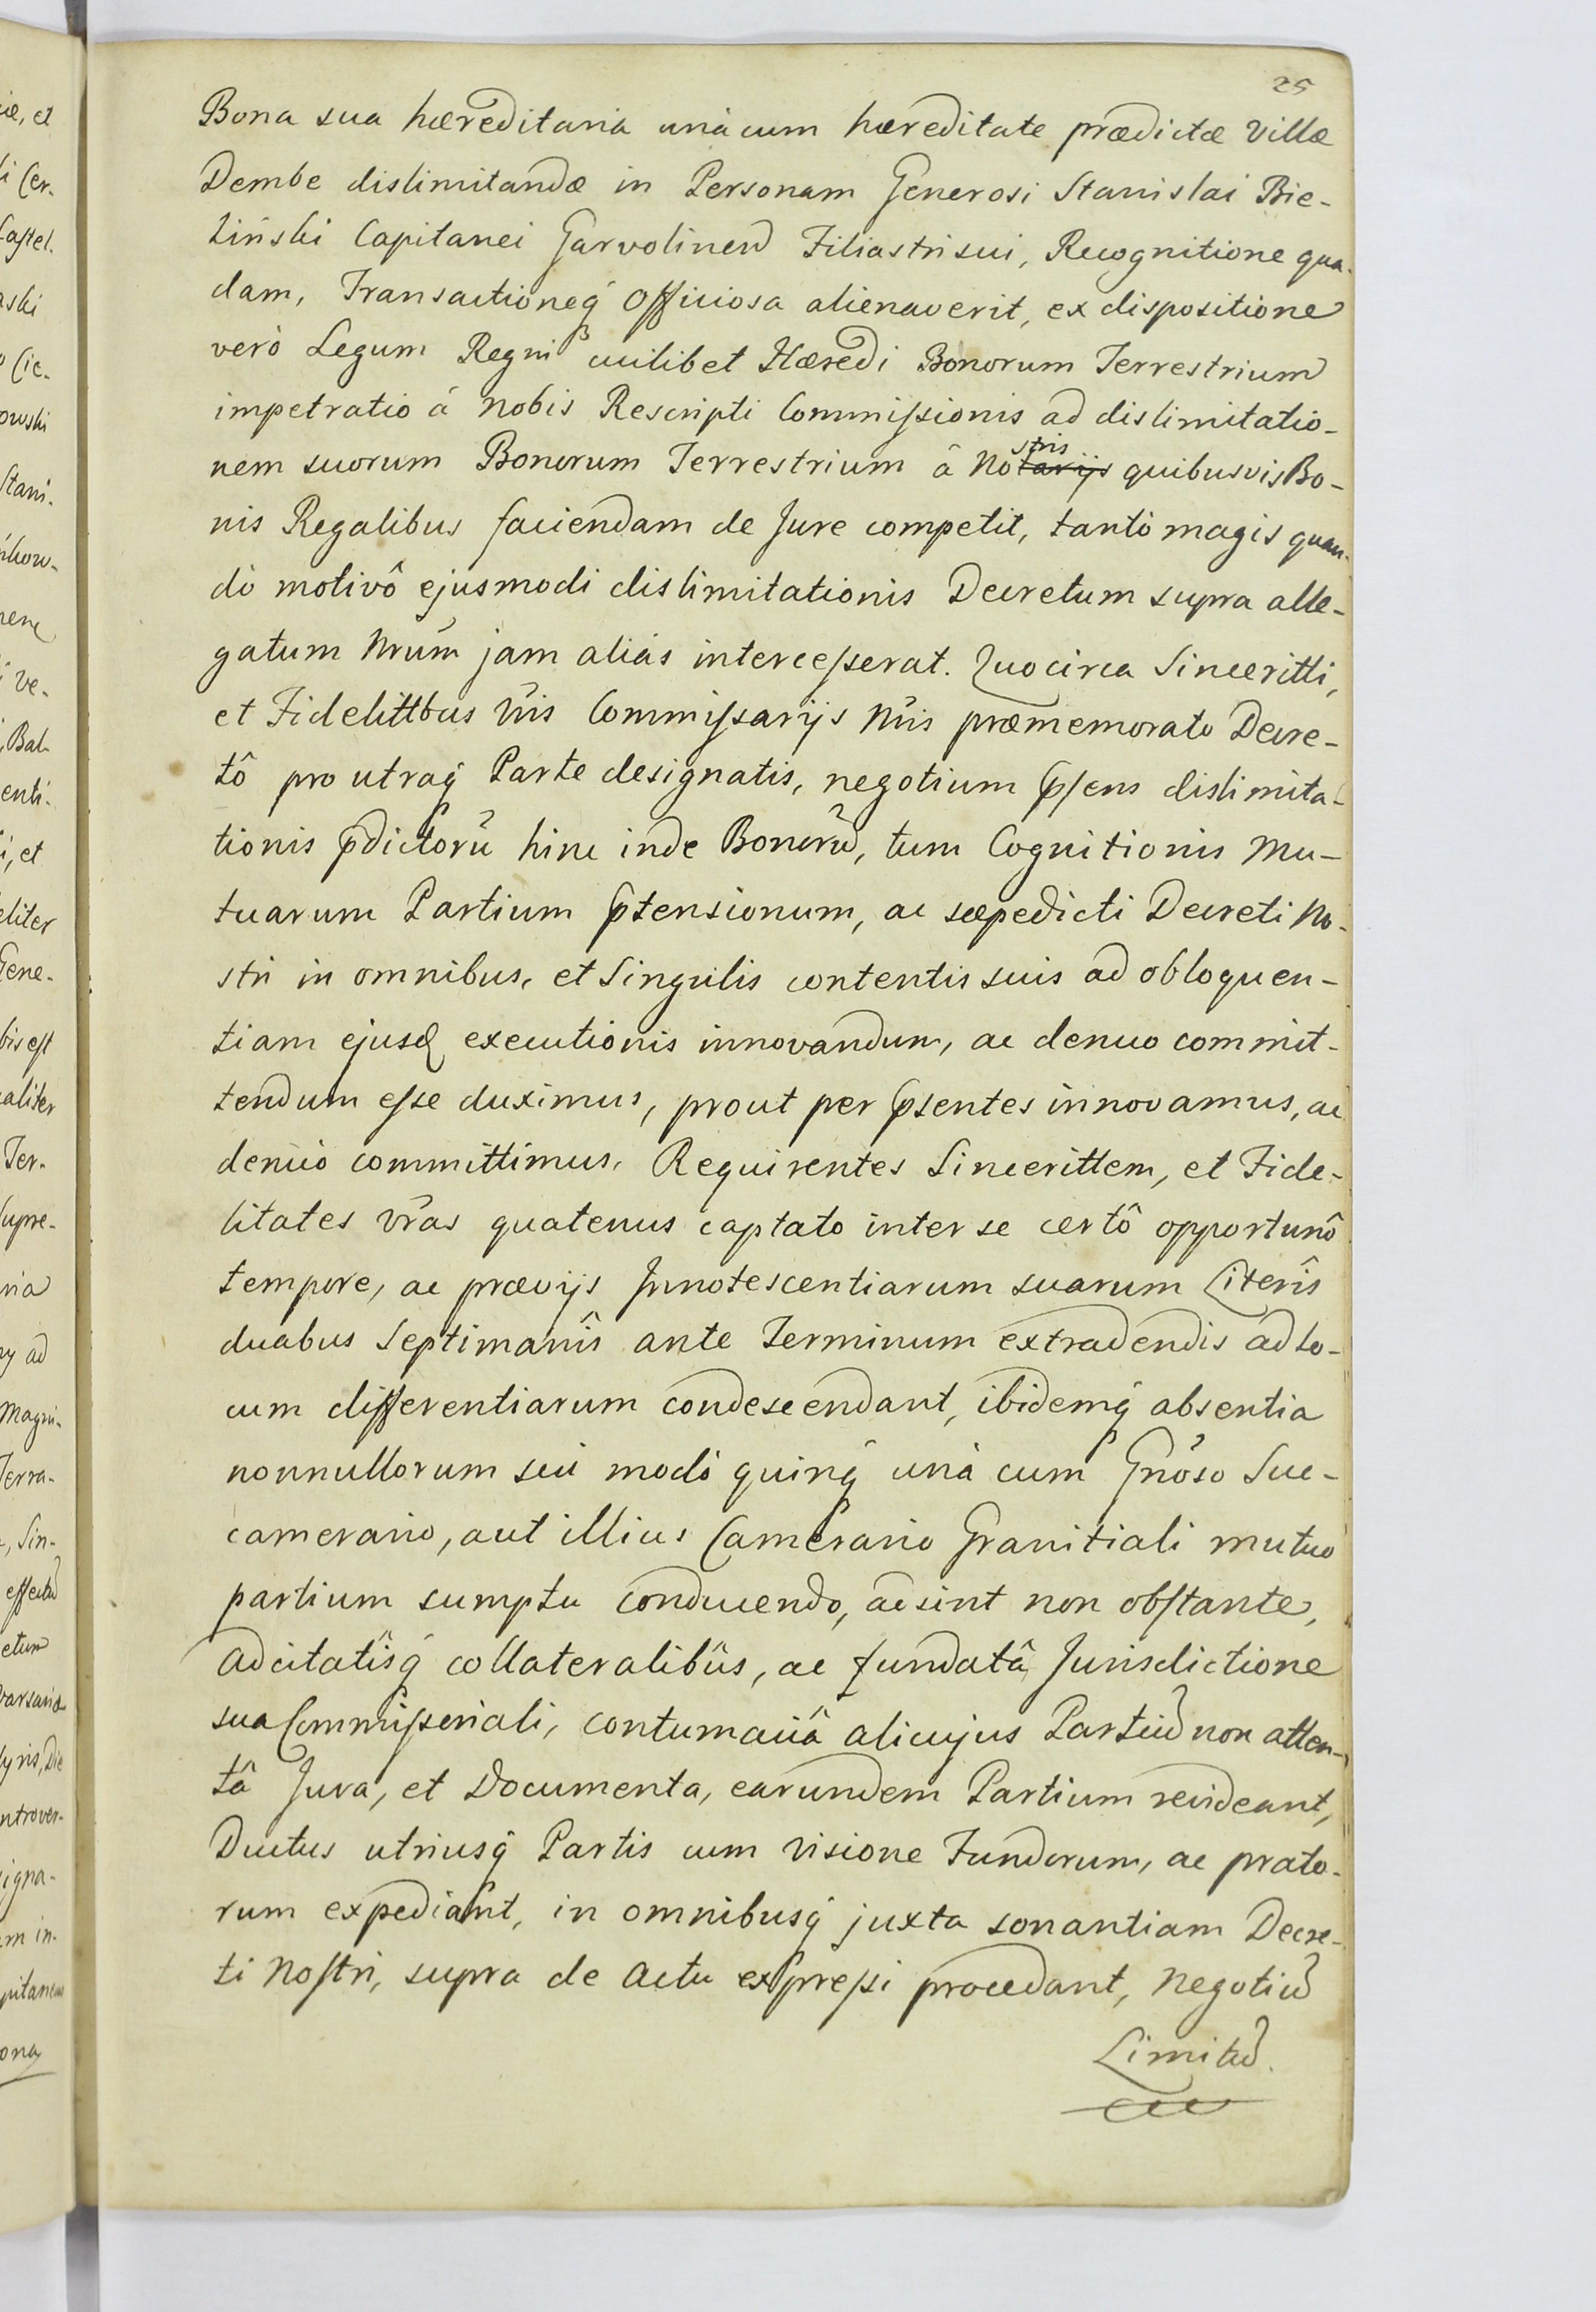 25
Bona sua hæreditaria unà cum hæreditate prædictæ Villæ
Dembe dislimitandæ in Personam Generosi Stanislai Bie-
liński Capitanei Garvolinen̄ Filiastri sui, Recognitione qua-
dam, Transactioneq́ Officiosa alienaverit, ex dispositione
verò Legum Regni cuilibet Hæredi Bonorum Terrestrium
impetratio á nobis Rescripti Commiſsionis ad dislimitatio-
nem suorum Bonorum Terrestrium â Nostris quibusvis Bo-
nis Regalibus faciendam de Jure competit, tantò magis quan-
dò motivô ejusmodi dislimitationis Decretum supra alle-
gatum Nrūm jam aliás interceſserat. Quocirca Sinceritti,
et Fidelittbus Vrīs Commiſsarijs Nrīs præmemorato Decre-
tô pro utraq́ Parte designatis, negotium p̄sens dislimita-
tionis p̄dictorū hinc inde Bonorū, tum Cognitionis Mu-
tuarum Partium p̄tensionum, ac sæpedicti Decreti No-
stri in omnibus, et Singulis contentis suis ad obloquen-
tiam ejusq́ executionis innovandum, ac denuo commit-
tendum eſse duximus, prout per p̄sentes innovamus, ac
denuò committimus, Requirentes Sincerittem, et Fide-
litates vr̄as quatenus captato inter se certô opportunô
tempore, ac prævijs Innotescentiarum suarum Literîs
duabus Septimanîs ante Terminum extradendis ad lo-
cum differentiarum condescendant, ibidemq́ absentia
nonnullorum seú modò quinq́ unà cum Gnōso Suc-
camerario, aut illius Camerario Granitiali mutuo
partium sumptu conducendo, adsint non obſtante,
adcitatîsq́ collateralibûs, ac fundatâ Jurisdictione
sua Commiſsoriali, contumaciâ alicujus Partiū non atten-
tâ Jura, et Documenta, earundem Partium revideant,
Ductus utriusq́ Partis cum Visione Fundorum, ac prato-
rum expediant, in omnibusq́ juxta sonantiam Decre-
ti Noſtri, supra de Actu expreſsi procedant, Negotiū
Limitū.